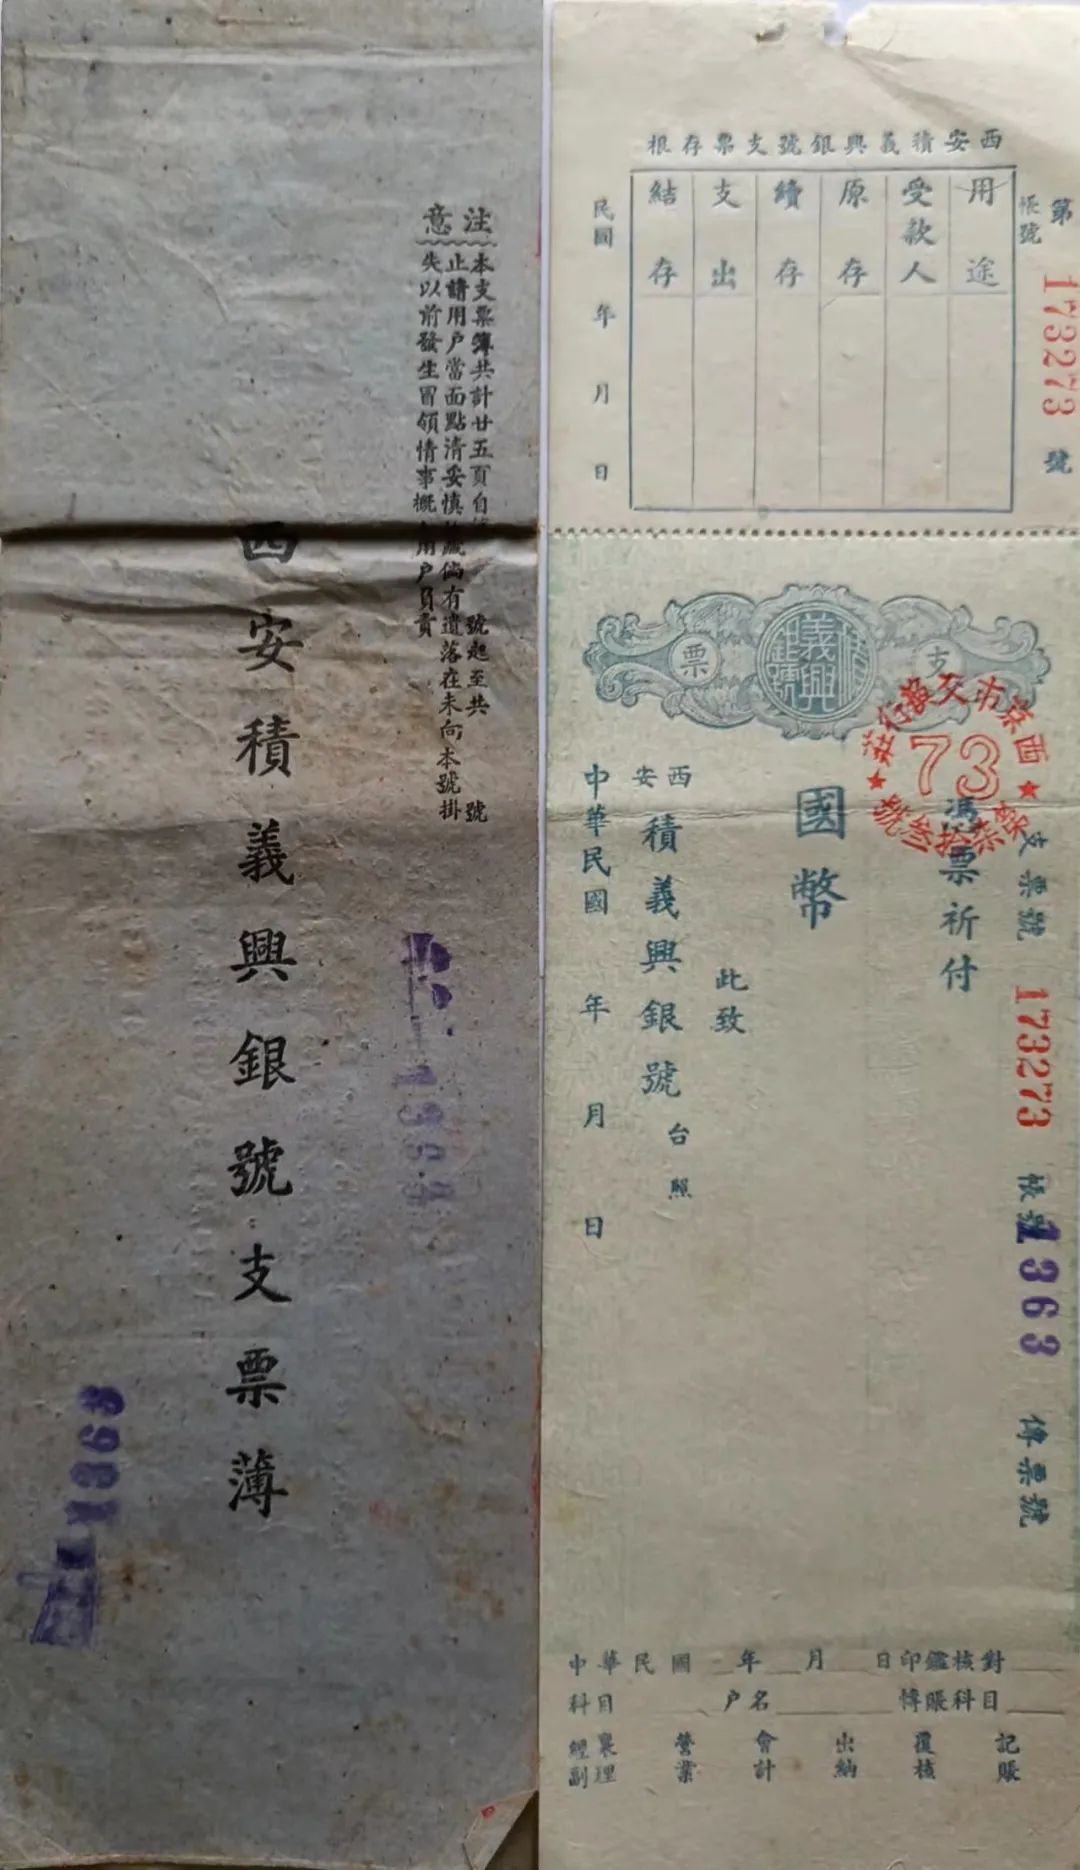 注意
本支票簿共計廿五頁自 號起至共 號
止請用户當面點清妥慎 藏倘有遺落在未向本號掛
失以前發生冒領情事概 用户負責
西安積義興銀號支票薄
1363
西安積義興銀號支票存根
第 173273 號
帳號
用途
受款人
原存
續存
支出
結存
民國 年 月 日
支票
積義興銀號
西京市交換行莊
73
第柒拾叁號
支票號 173273 帳號 1363 傳票號
憑票祈付
國幣
此致
西安積義興銀號 台照
中華民國 年 月 日
中華民國 年 月 日印鑑核對
科目 户名 轉賬科目
經副襄理 營業 會計 出納 覆核 記賬